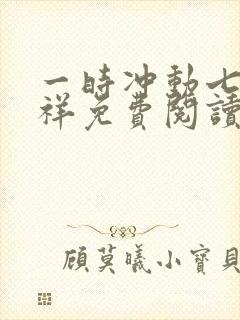 一時冲動七
祥免費閱讀
顧莫曦小寶貝